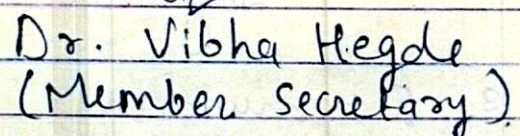 Dr. Vibha Hegde
(Member Secretary)